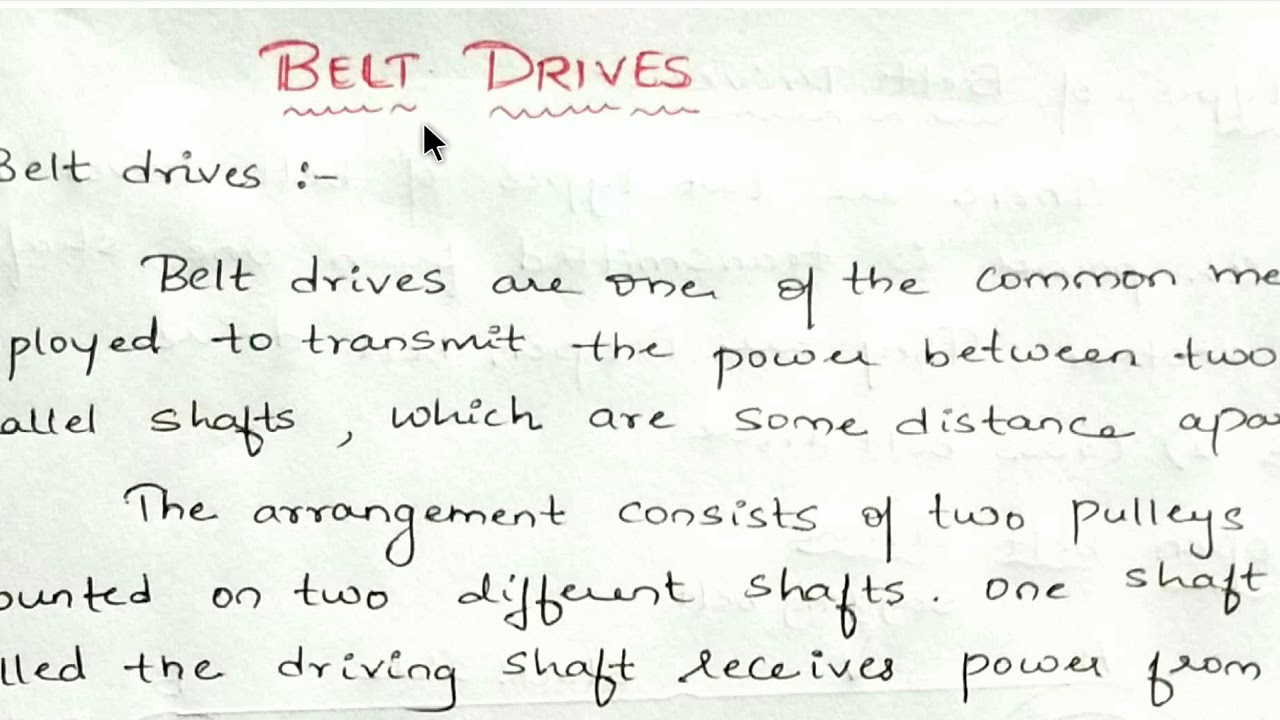 BELT DRIVES
Belt drives :-
Belt drives are one of the common me
ployed to transmit the power between two
allel shafts, which are some distance apa
The arrangement consists of two pulleys
ounted on two different shafts. one shaft
lled the driving shaft receives power from